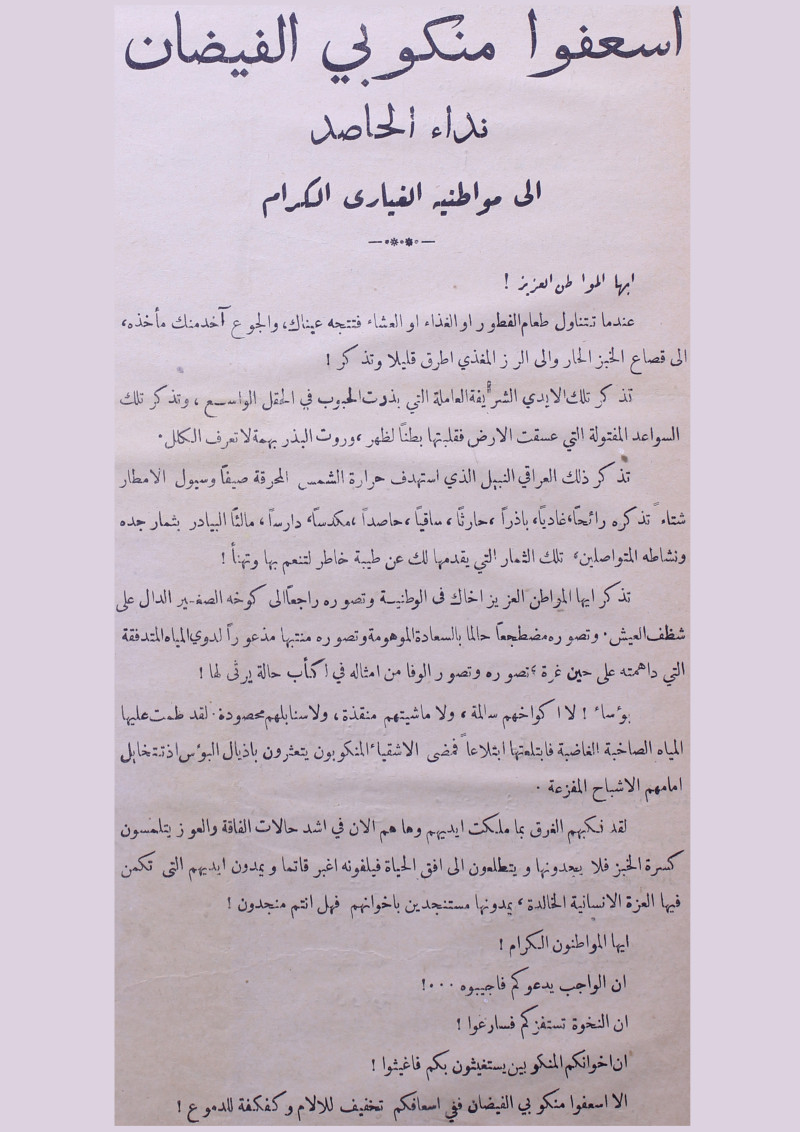 اسعفوا منكوبي الفيضان
نداء الحاصد
الى مواطنيه الغيارى الكرام
ايها المواطن العزيز !
عندما تتناول طعام الفطور او الغذاء او العشاء فتتجه عيناك، والجوع آخد منك مأخذه،
الى قصاع الخبز الحار والى الرز المغذي اطرق قليلا وتذكر !
تذكر تلك الايدي الشريفة العاملة التي بذرت الحبوب في الحقل الواسع ، وتذكر تلك
السواعد المفتولة التي عسقت الارض فقلبتها بطنًا لظهر ، وروت البذر بهمة لا تعرف الكلل.
تذكر ذلك العراقي النبيل الذي استهدف حرارة الشمس المحرقة صيفًا وسيول الامطار
شتاءً تذكره رائحًا، غاديًا، باذراً ، حارثًا ، ساقيًا ، حاصداً ، مكدساً، دارساً ، مالئًا البيادر بثمار جده
ونشاطه المتواصلين، تلك الثمار التي يقدمها لك عن طيبة خاطر لتنعم بها وتهنأ !
تذكر ايها المواطن العزيز اخاك في الوطنية وتصوره راجعًا الى كوخه الصغير الدال على
شظف العيش. وتصوره مضطجعًا حالما بالسعادة الموهومة وتصوره منتبها مذعوراً لدوي المياه المتدفقة
التي داهمته على حين غرة ؟ تصوره وتصور الوفا من امثاله في اكأب حالة يرثى لها !
بؤساء ! لا اكواخهم سالمة ، ولا ماشيتهم منقذة ، ولا سنابلهم محصودة. لقد طمت عليها
المياه الصاخبة الغاضبة فابتلعتها ابتلاعاً فمضى الاشقياء المنكوبون يتعثرون باذيال البؤس اذ تتخايل
امامهم الاشباح المفزعة .
لقد نكبهم الغرق بما ملكت ايديهم وها هم الان في اشد حالات الفاقة والعوز يتلمسون
كسرة الخبز فلا يجدونها ويتطلعون الى افق الحياة فيلفونه اغبر قاتما ويمدون ايديهم التي تكمن
فيها العزة الانسانية الخالدة ، يمدونها مستنجدين باخوانهم فهل انتم منجدون !
ايها المواطنون الكرام !
ان الواجب يدعوكم فاجيبوه ...!
ان النخوة تستفزكم فسارعوا !
ان اخوانكم المنكوبين يستغيثون بكم فاغيثوا !
الا اسعفوا منكوبي الفيضان ففي اسعافكم تخفيف للالام وكفكفة للدموع !